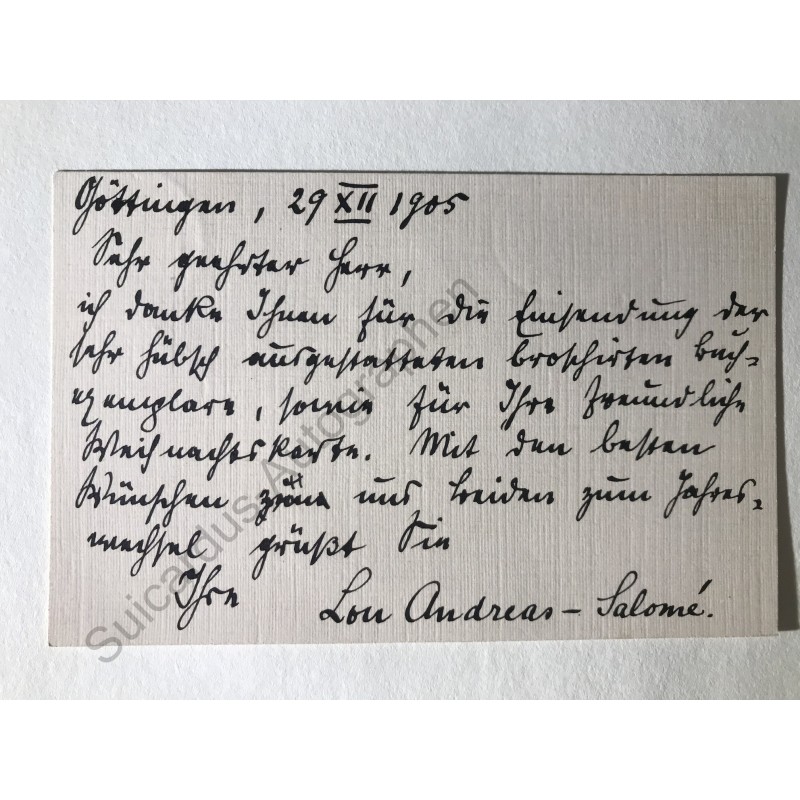 Göttingen, 29 XII 1905
Sehr geehrter Herr,
ich danke Ihnen für die Einsendung der
sehr hübsch ausgestatteten broschirten Buch-
exemplare, sowie für Ihre freundliche
Weihnachtskarte. Mit den besten
Wünschen uns beiden zum Jahres-
wechsel grüßt Sie
Ihre Lou Andreas-Salomé.
Suicardus Autographen